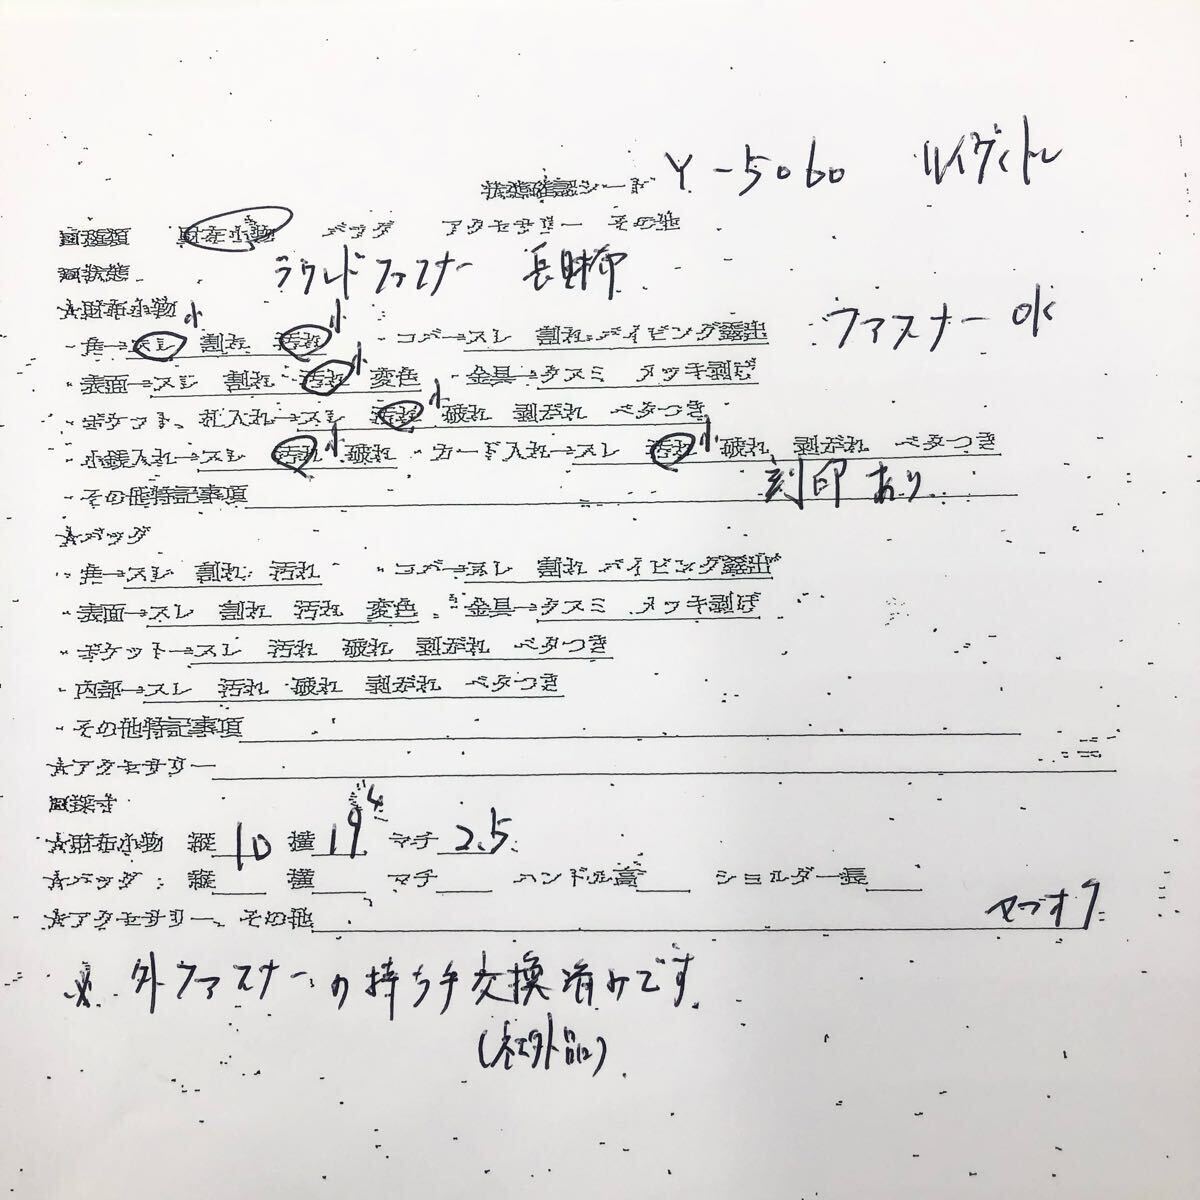 状態確認シート Y-5060 ルイヴィトン
□種類 財布小物 バッグ アクセサリー その他
□状態 ラウンドファスナー 長財布
☆財布小物
・角→スレ 小 割れ 汚れ 小 ・コバ→スレ 割れ パイピング露出 ファスナー OK
・表面→スレ 割れ 汚れ 小 変色 ・金具→クスミ メッキ剥げ
・ポケット、札入れ→スレ 汚れ 小 破れ 剥がれ ベタつき
・小銭入れ→スレ 汚れ 小 破れ ・カード入れ→スレ 汚れ 小 破れ 剥がれ ベタつき
・その他特記事項 刻印あり
☆バッグ
・角→スレ 割れ 汚れ ・コバ→スレ 割れ パイピング露出
・表面→スレ 割れ 汚れ 変色 ・金具→クスミ メッキ剥げ
・ポケット→スレ 汚れ 破れ 剥がれ ベタつき
・内部→スレ 汚れ 破れ 剥がれ ベタつき
・その他特記事項
☆アクセサリー
□採寸
☆財布小物 縦 10 横 19 マチ 2.5
☆バッグ: 縦 横 マチ ハンドル高 ショルダー長
☆アクセサリー、その他
※ 外ファスナーの持ち手交換済みです。
(社外品)